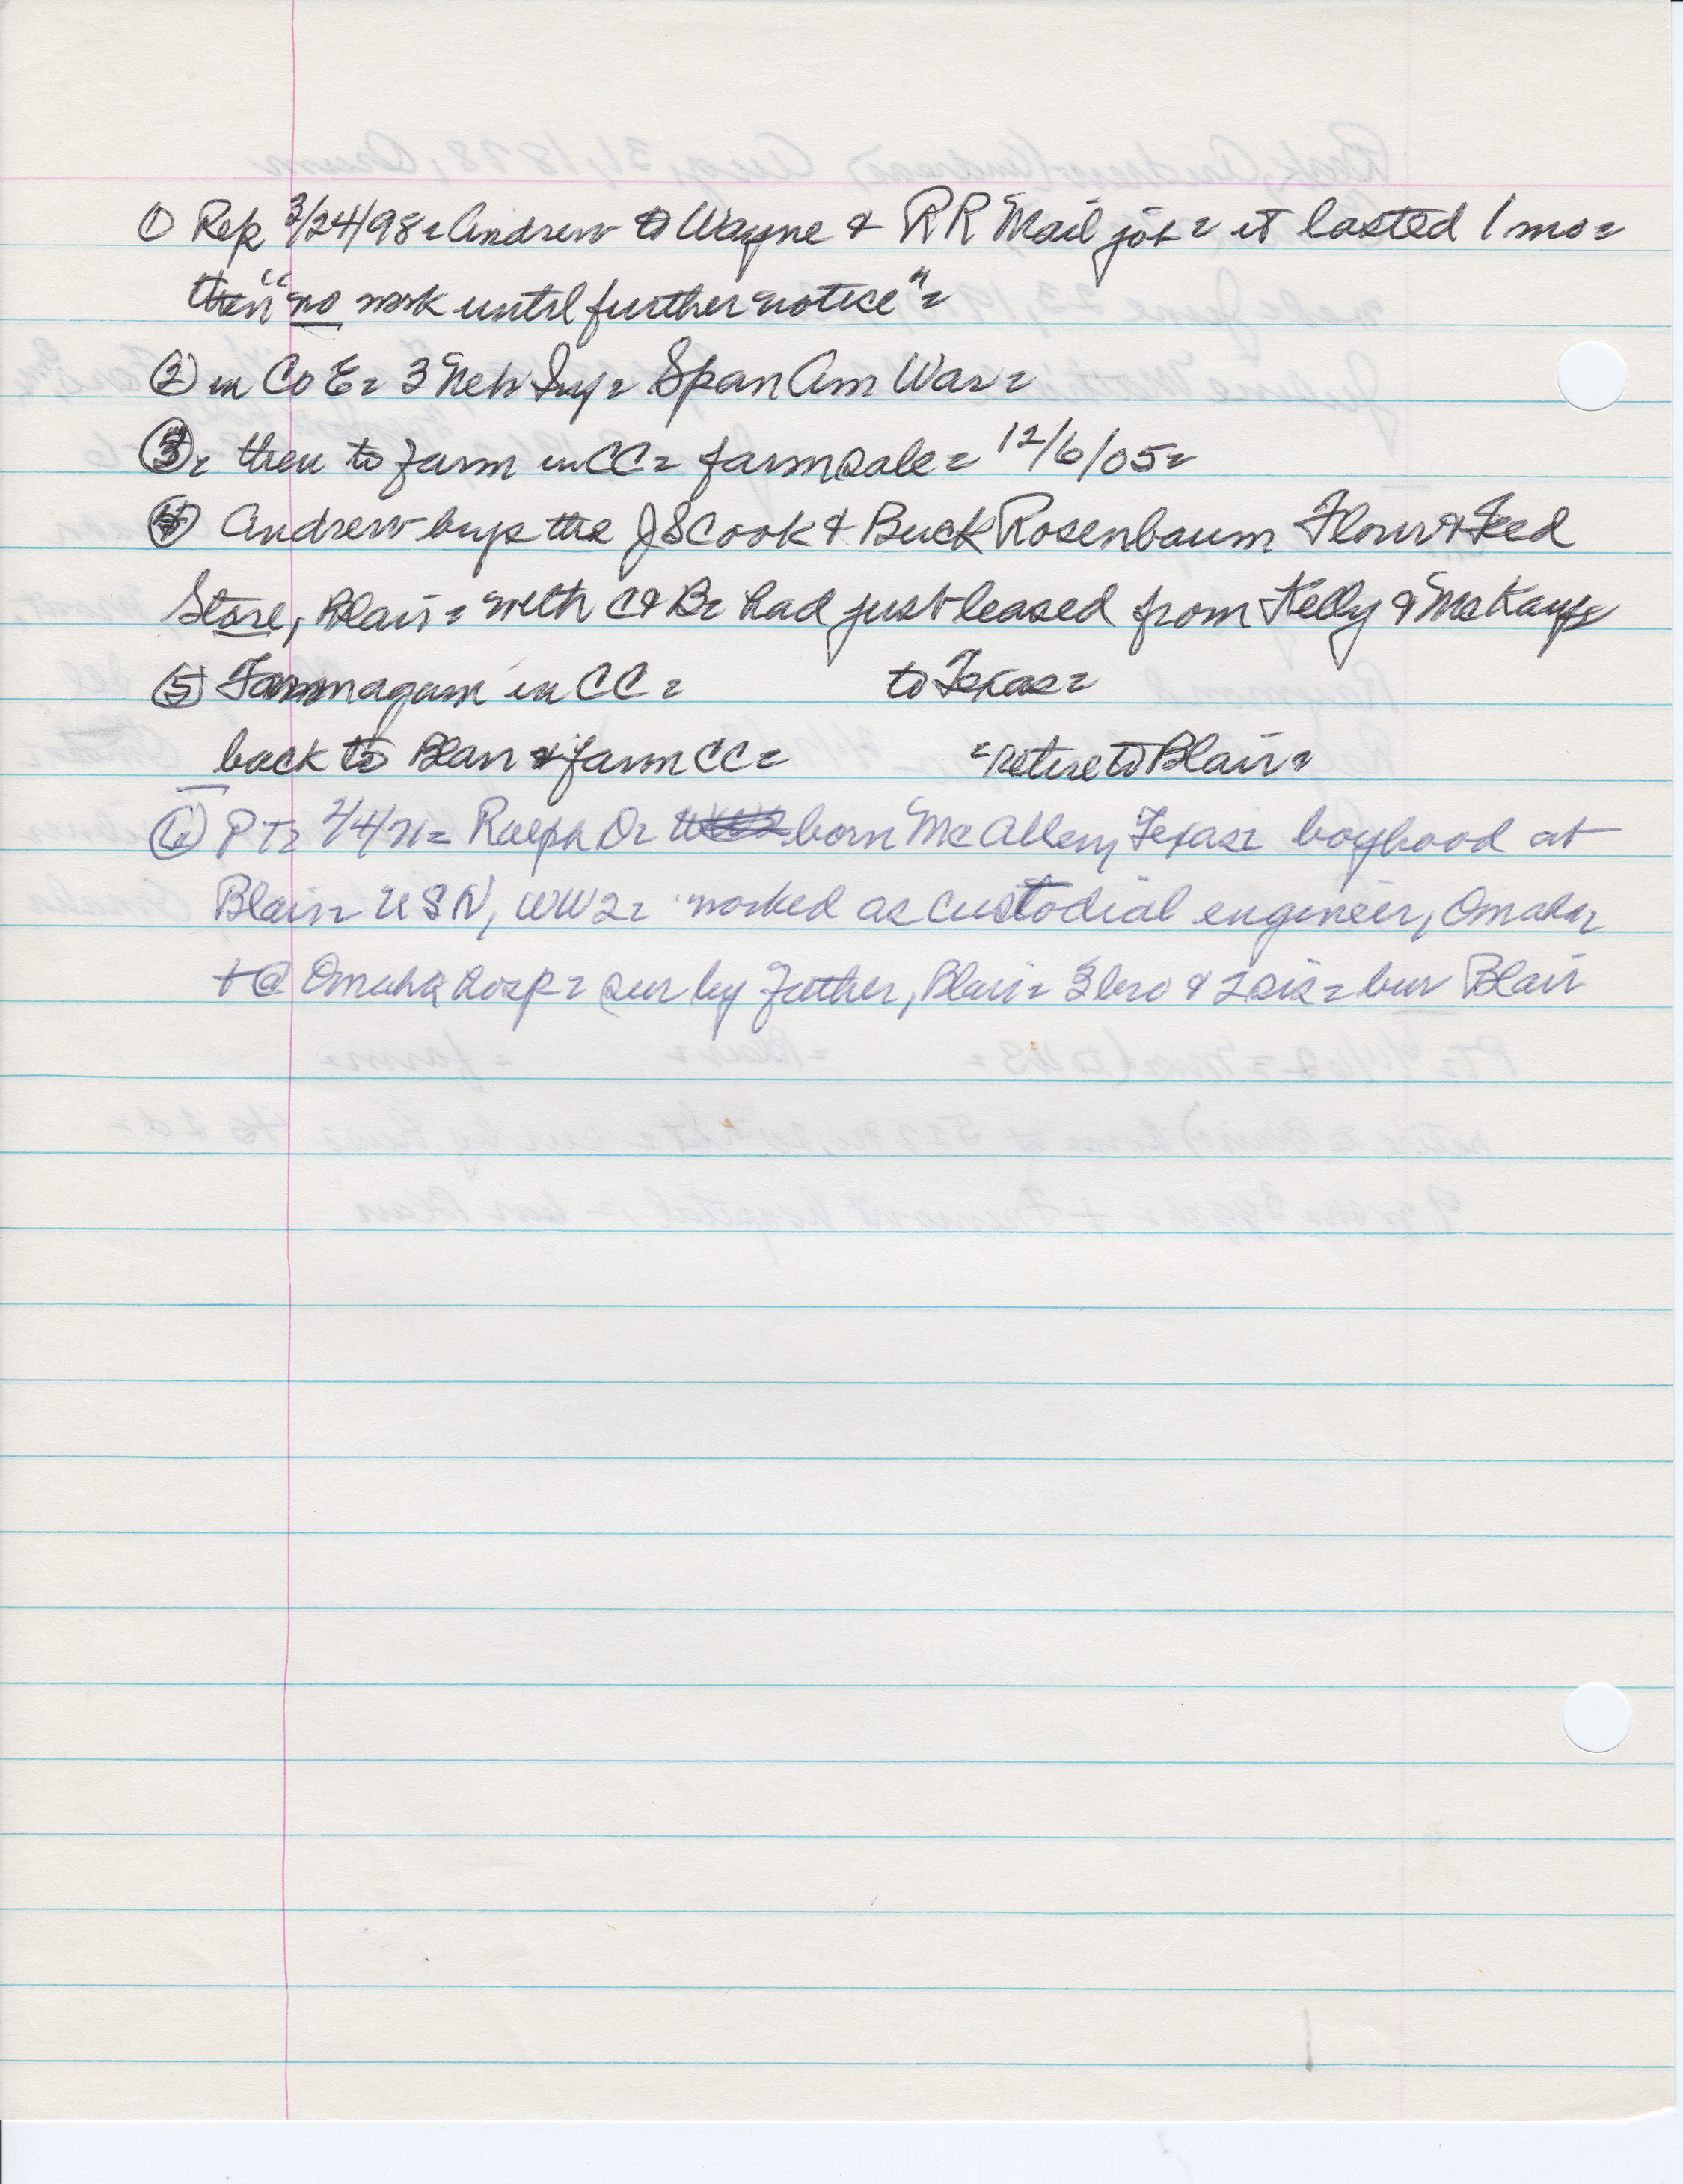 ① Rep 3/24/98 = Andrew to Wayne & RR Mail job = it lasted 1 mo =
then "no work until further notice" =
② in Co E = 3 Neb Inf = Span Am War =
③ = then to farm in CC = farm sale = 12/6/05 =
④ Andrew buys the J S Cook & Buck Rosenbaum Flour & Feed
Store, Blair = C & B = had just leased from Kelly & McKay
⑤ Farm again in CC = to Texas =
back to Blair & farm CC = = retire to Blair =
⑥ PT = 2/4/71 = Ralph O = born McAllen, Texas = boyhood at
Blair = USN, WW2 = worked as custodial engineer, Omaha =
+ @ Omaha hosp = sur by father, Blair = 3 bro & 2 sis = bur Blair